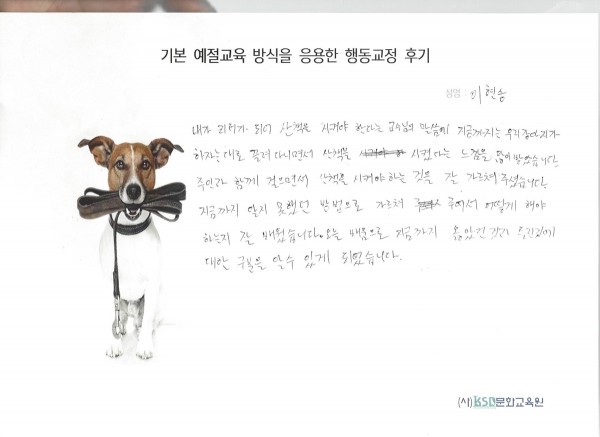 기본 예절교육 방식을 응용한 행동교정 후기
성명 : 이현승
내가 리더가 되어 산책을 시켜야 한다는 교수님의 말씀에 지금까지는 우리 강아지가
하자는대로 끌려 다니면서 산책을 시켰다는 느낌을 많이 받았습니다.
주인과 함께 걸으면서 산책을 시켜야하는 것을 잘 가르쳐 주셨습니다
지금까지 알지 못했던 방법으로 가르쳐 주셔서 어떻게 해야
하는지 잘 배웠습니다. 오늘 배움으로 지금까지
대한 구분을 알수 있게 되었습니다.
(사)KSD문화교육원